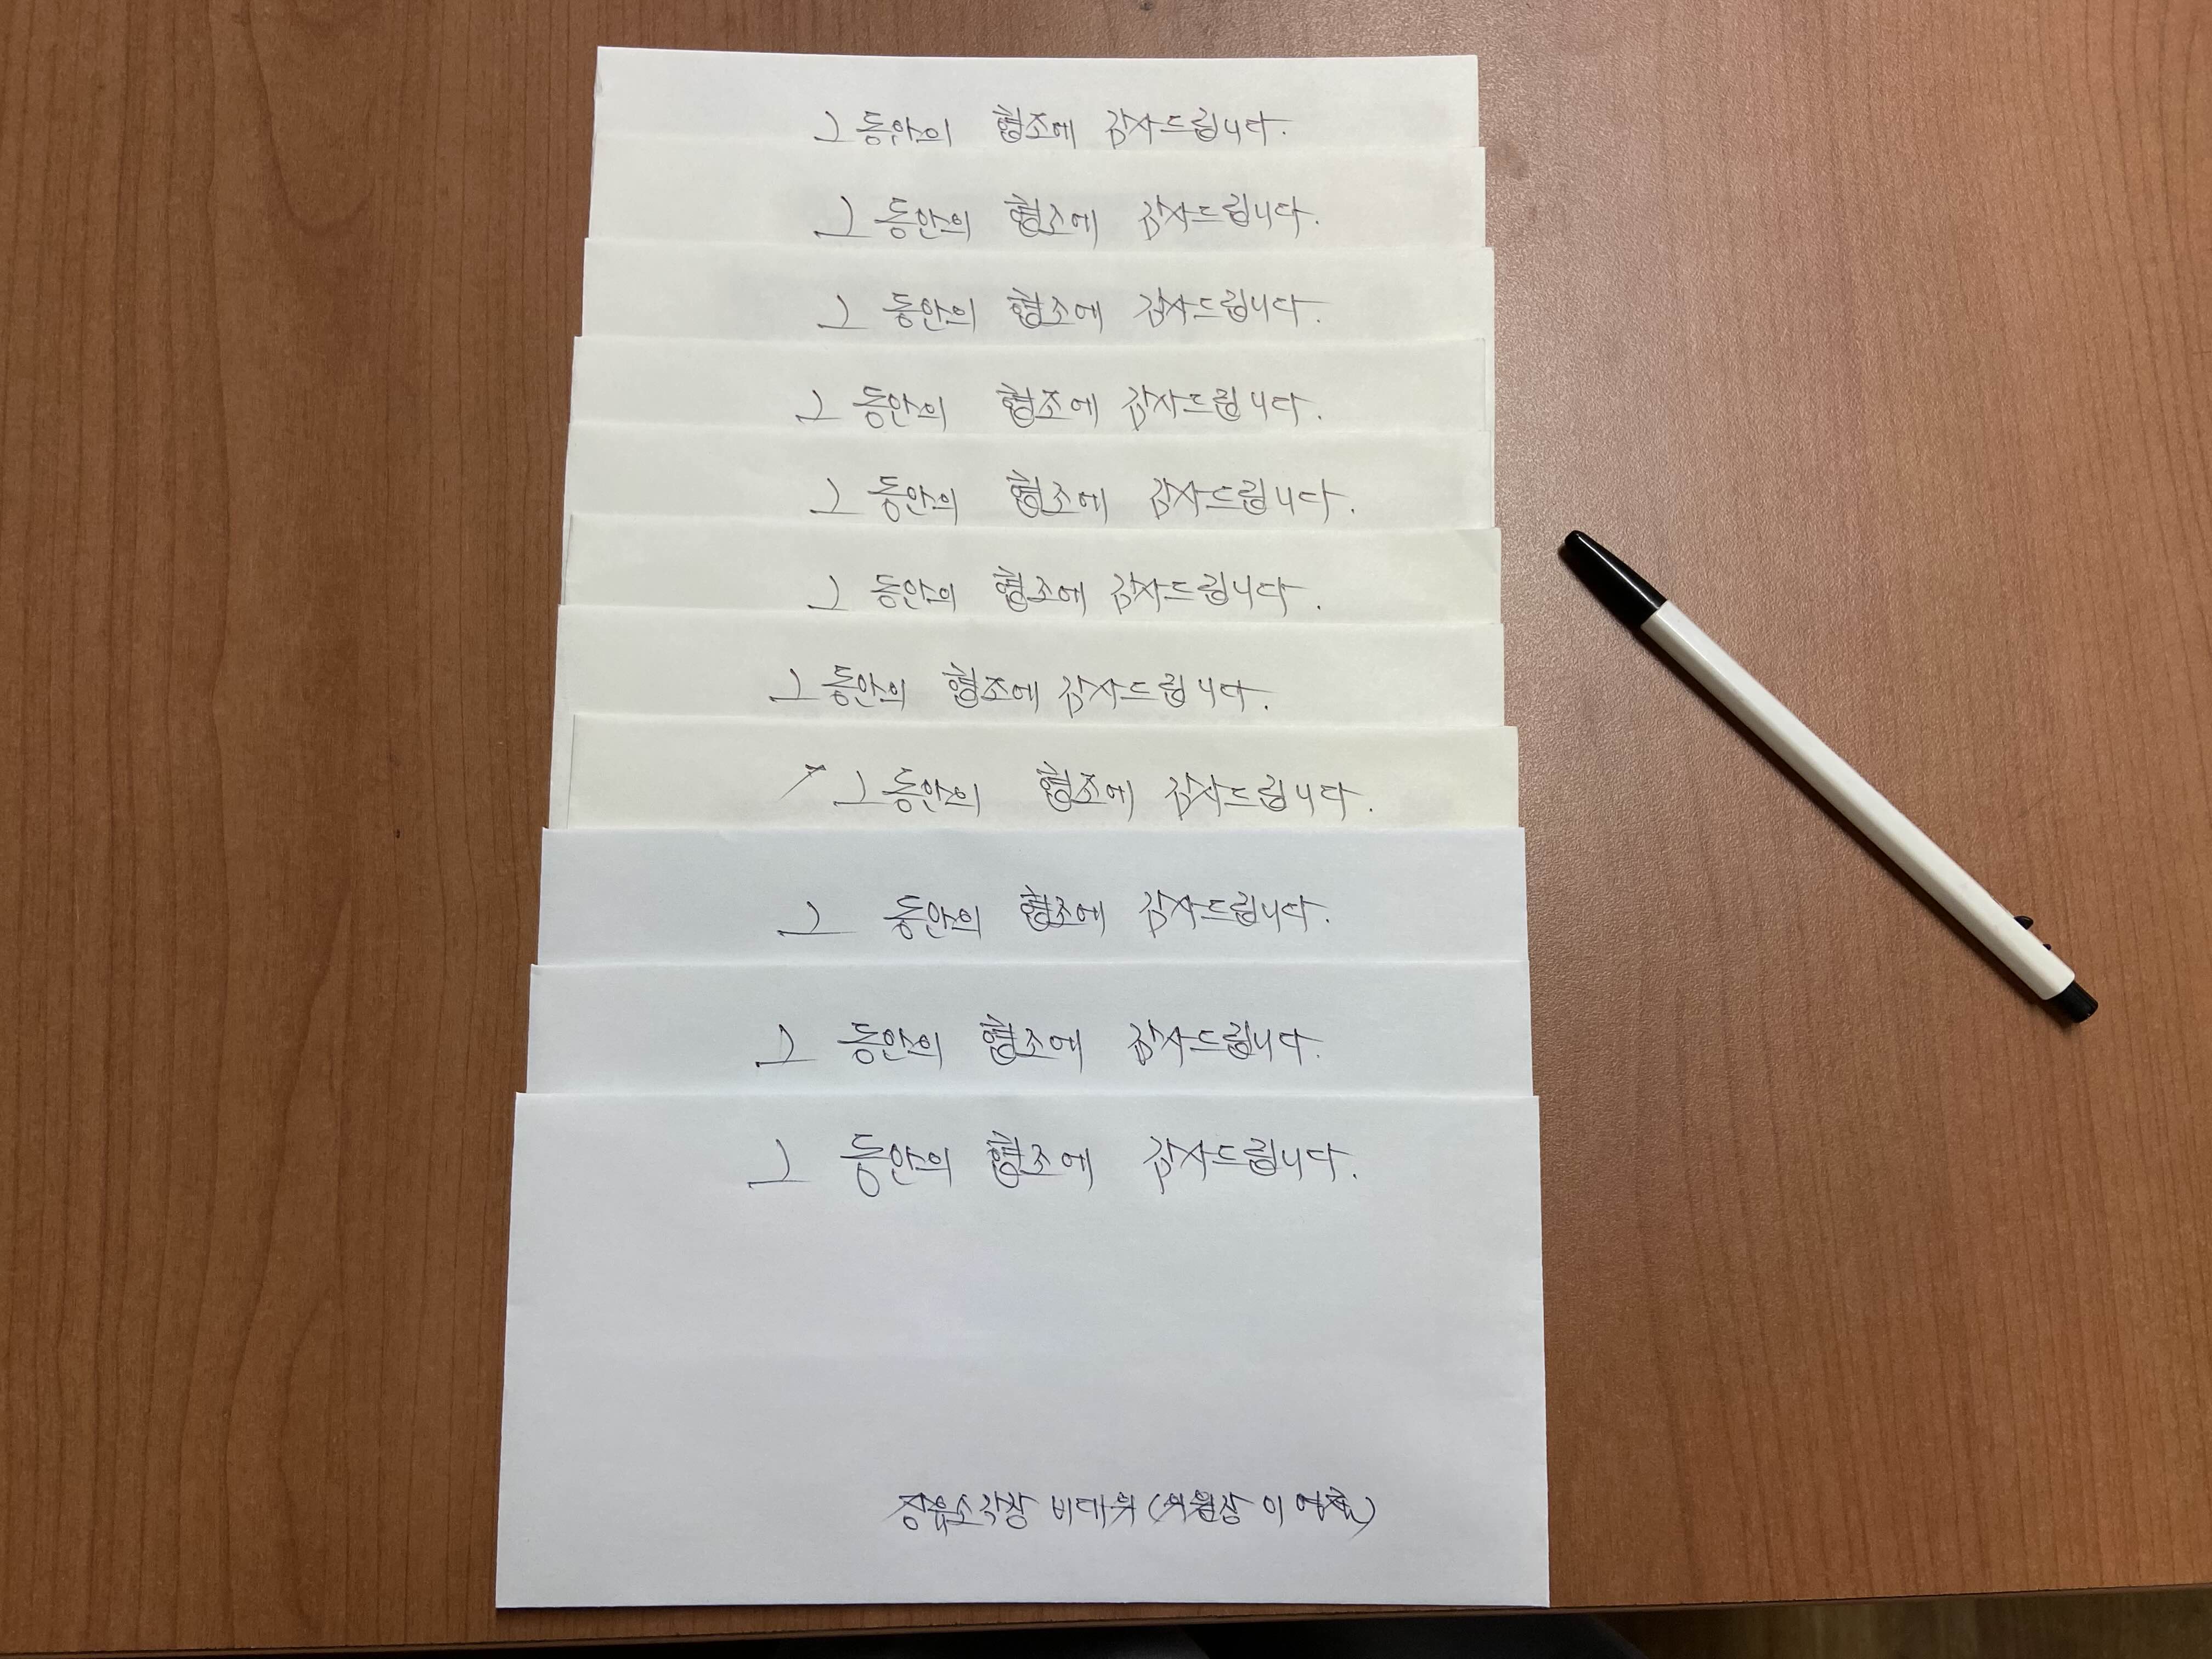 그 동안의 협조에 감사드립니다.
그 동안의 협조에 감사드립니다.
그 동안의 협조에 감사드립니다.
그 동안의 협조에 감사드립니다.
그 동안의 협조에 감사드립니다.
그 동안의 협조에 감사드립니다.
그 동안의 협조에 감사드립니다.
그 동안의 협조에 감사드립니다.
그 동안의 협조에 감사드립니다.
그 동안의 협조에 감사드립니다.
그 동안의 협조에 감사드립니다.
장유소각장 비대위 (위원장 이